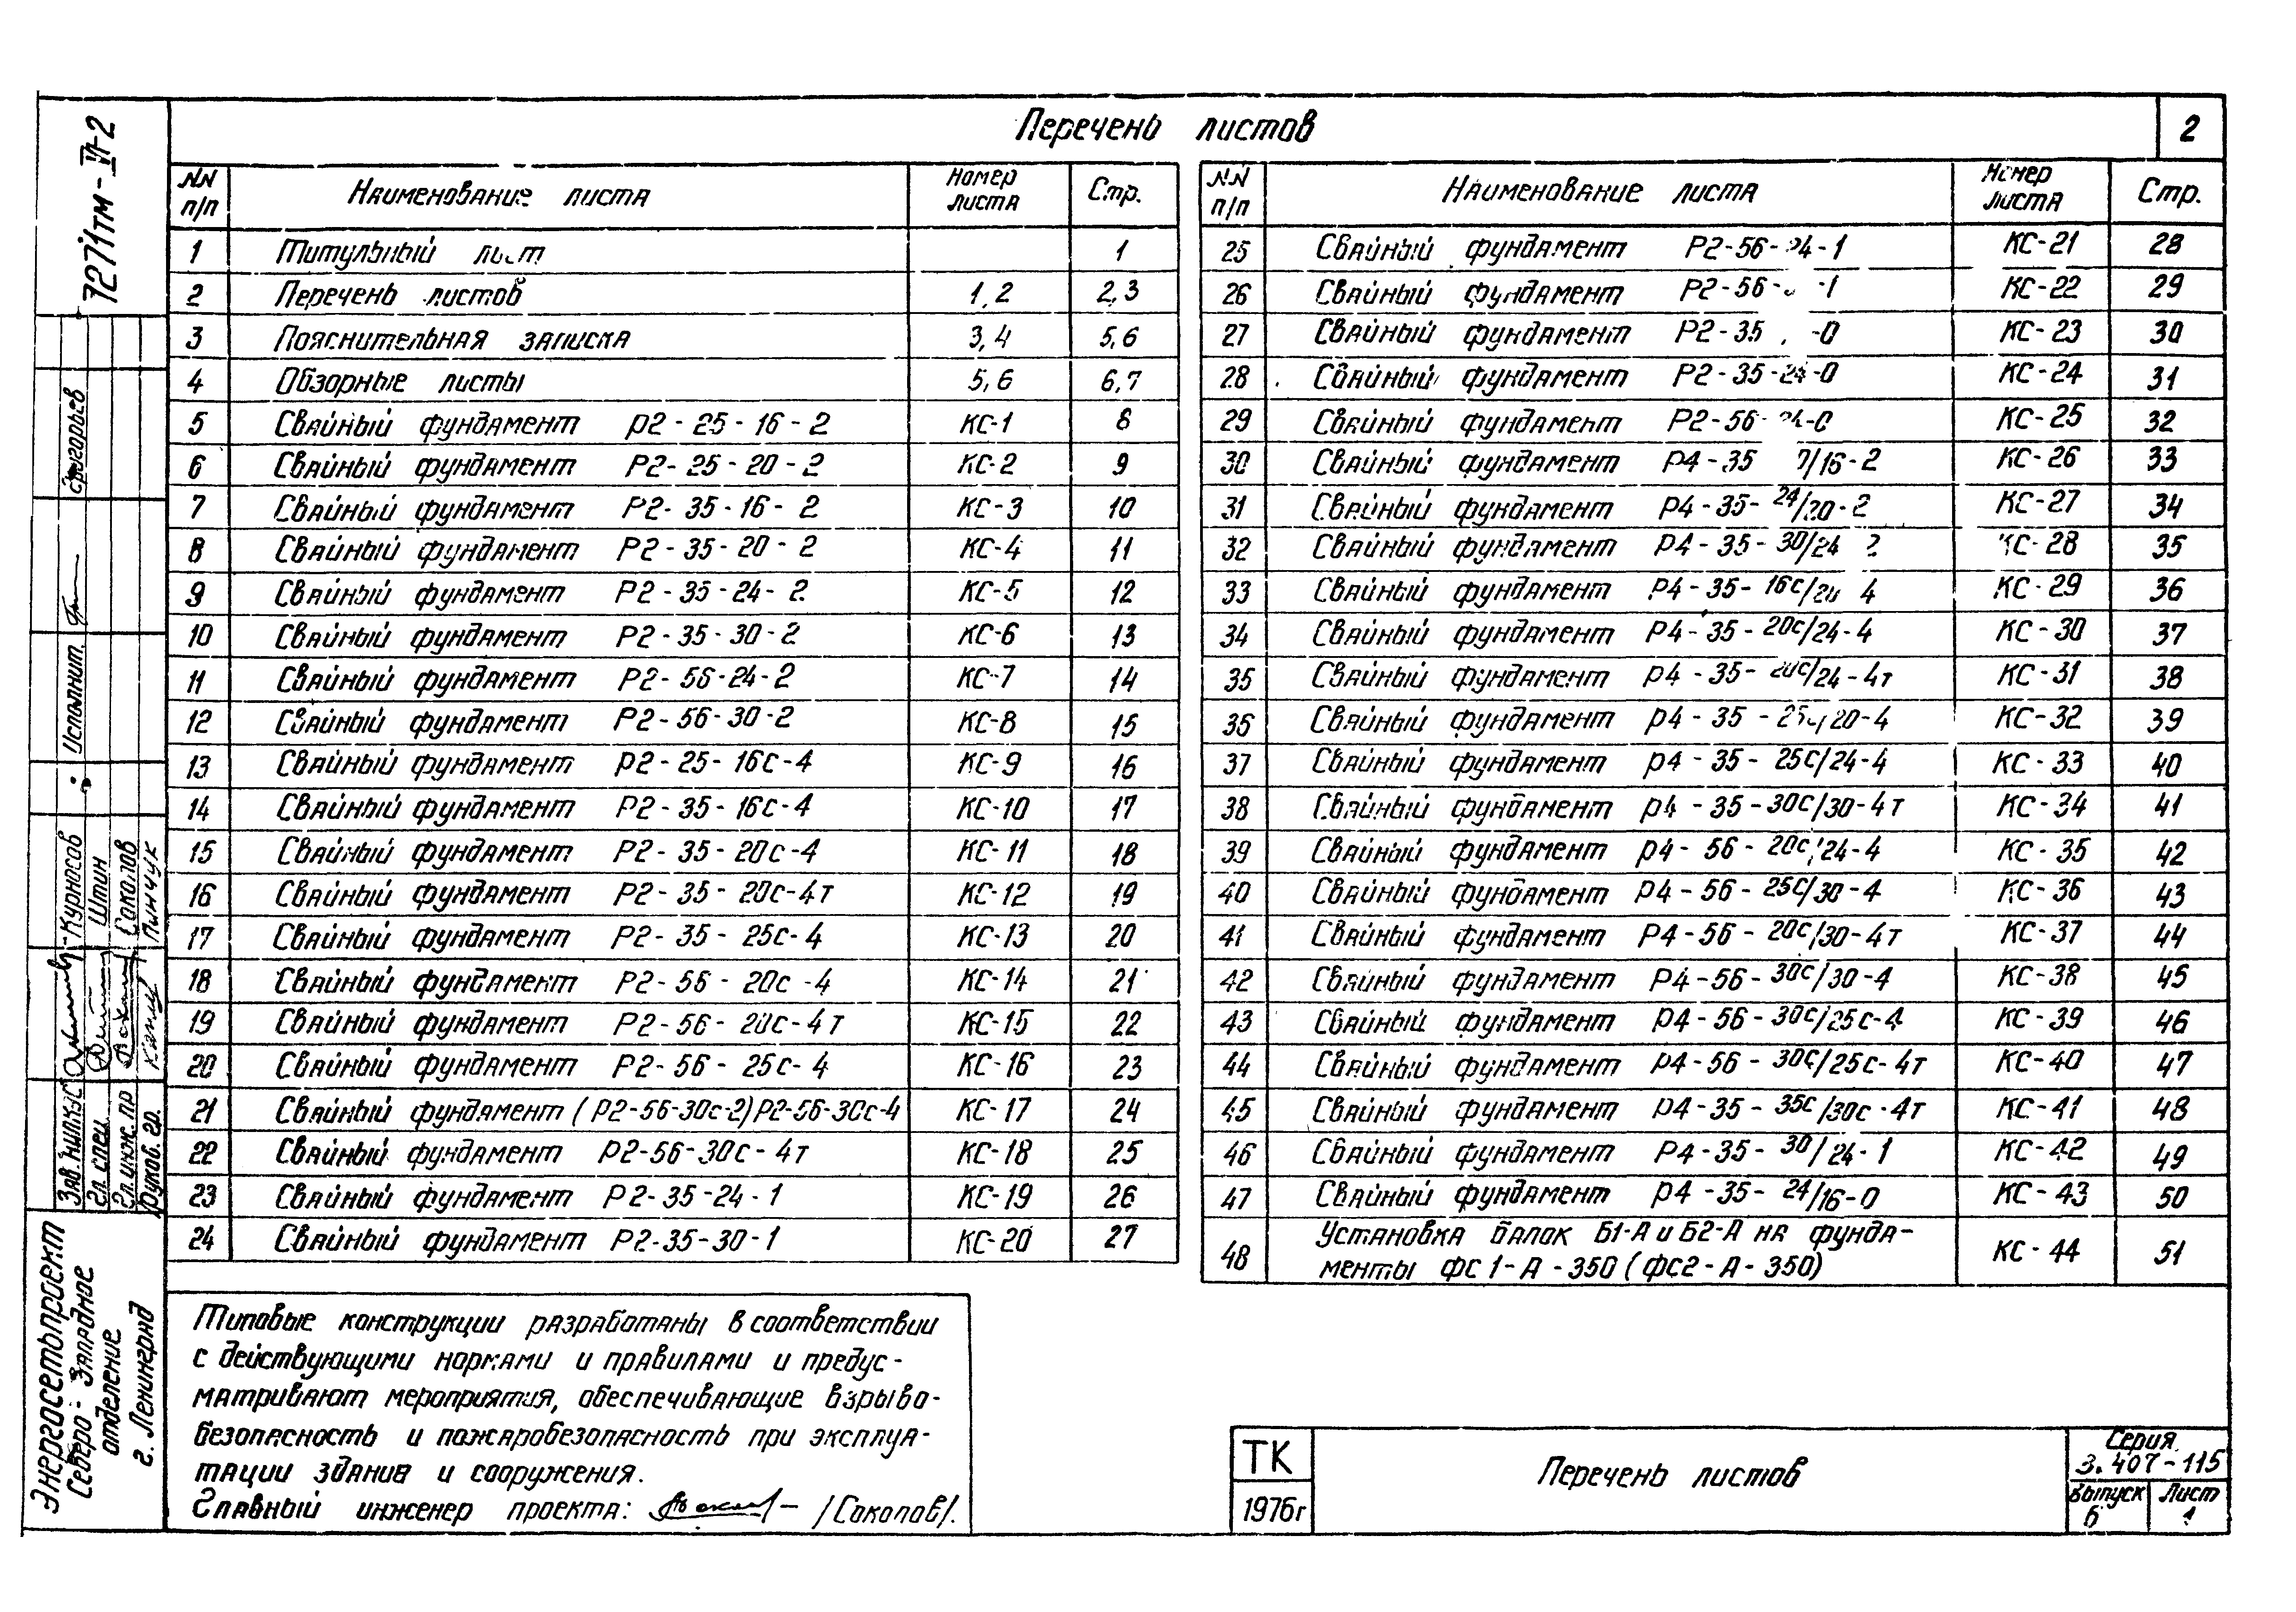 Перечень листов
2
NN п/п Наименование листа Номер листа Стр.
1 Титульный лист 1
2 Перечень листов 1,2 2,3
3 Пояснительная записка 3,4 5,6
4 Обзорные листы 5,6 6,7
5 Свайный фундамент Р2-25-16-2 КС-1 8
6 Свайный фундамент Р2-25-20-2 КС-2 9
7 Свайный фундамент Р2-35-16-2 КС-3 10
8 Свайный фундамент Р2-35-20-2 КС-4 11
9 Свайный фундамент Р2-35-24-2 КС-5 12
10 Свайный фундамент Р2-35-30-2 КС-6 13
11 Свайный фундамент Р2-56-24-2 КС-7 14
12 Свайный фундамент Р2-56-30-2 КС-8 15
13 Свайный фундамент Р2-25-16с-4 КС-9 16
14 Свайный фундамент Р2-35-16с-4 КС-10 17
15 Свайный фундамент Р2-35-20с-4 КС-11 18
16 Свайный фундамент Р2-35-20с-4т КС-12 19
17 Свайный фундамент Р2-35-25с-4 КС-13 20
18 Свайный фундамент Р2-56-20с-4 КС-14 21
19 Свайный фундамент Р2-56-20с-4т КС-15 22
20 Свайный фундамент Р2-56-25с-4 КС-16 23
21 Свайный фундамент (Р2-56-30с-2) Р2-56-30с-4 КС-17 24
22 Свайный фундамент Р2-56-30с-4т КС-18 25
23 Свайный фундамент Р2-35-24-1 КС-19 26
24 Свайный фундамент Р2-35-30-1 КС-20 27
NN п/п Наименование листа Номер листа Стр.
25 Свайный фундамент Р2-56-24-1 КС-21 28
26 Свайный фундамент Р2-56- -1 КС-22 29
27 Свайный фундамент Р2-35 -0 КС-23 30
28 Свайный фундамент Р2-35-24-0 КС-24 31
29 Свайный фундамент Р2-56-24-0 КС-25 32
30 Свайный фундамент Р4-35 /16-2 КС-26 33
31 Свайный фундамент Р4-35-24/20-2 КС-27 34
32 Свайный фундамент Р4-35-30/24 2 КС-28 35
33 Свайный фундамент Р4-35-16с/20 4 КС-29 36
34 Свайный фундамент Р4-35-20с/24-4 КС-30 37
35 Свайный фундамент Р4-35-20с/24-4т КС-31 38
36 Свайный фундамент Р4-35-25с/20-4 КС-32 39
37 Свайный фундамент Р4-35-25с/24-4 КС-33 40
38 Свайный фундамент Р4-35-30с/30-4т КС-34 41
39 Свайный фундамент Р4-56-20с/24-4 КС-35 42
40 Свайный фундамент Р4-56-25с/30-4 КС-36 43
41 Свайный фундамент Р4-56-20с/30-4т КС-37 44
42 Свайный фундамент Р4-56-30с/30-4 КС-38 45
43 Свайный фундамент Р4-56-30с/25с-4 КС-39 46
44 Свайный фундамент Р4-56-30с/25с-4т КС-40 47
45 Свайный фундамент Р4-35-35с/30с-4т КС-41 48
46 Свайный фундамент Р4-35-30/24-1 КС-42 49
47 Свайный фундамент Р4-35-24/16-0 КС-43 50
48 Установка балок Б1-А и Б2-А на фунда-
менты ФС1-А-350 (ФС2-А-350) КС-44 51
Типовые конструкции разработаны в соответствии
с действующими нормами и правилами и предус-
матривают мероприятия, обеспечивающие взрыво-
безопасность и пожаробезопасность при эксплуа-
тации здания и сооружения.
Главный инженер проекта: /Соколов/.
ТК
1976г
Перечень листов
Серия
3.407-115
Выпуск 6
Лист 1
7271тм-VI-2
Григорьев
Исполнит.
Курносов
Штин
Соколов
Пинчук
Зав. НИЛКЭС
Гл. спец.
Гл. инж. пр
Руков. гр.
Энергосетьпроект
Северо-Западное
отделение
г. Ленинград